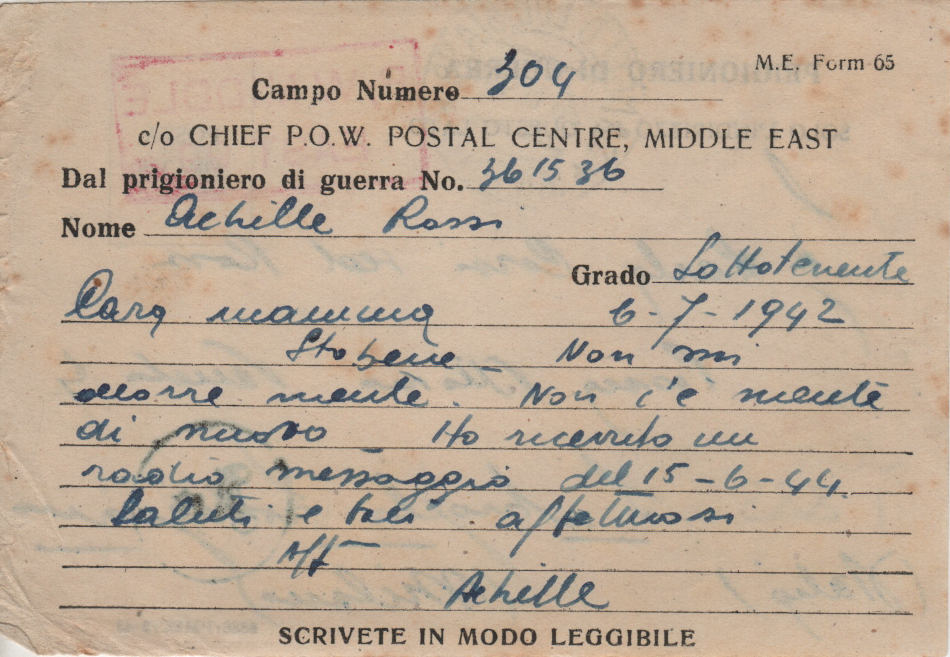 M.E. Form 65
Campo Numero 304
c/o CHIEF P.O.W. POSTAL CENTRE, MIDDLE EAST
Dal prigioniero di guerra No. 361536
Nome Achille Rossi
Grado Sottotenente
Cara mamma 6-7-1942
Sto bene Non mi
occorre niente. Non c'è niente
di nuovo Ho ricevuto un
radio messaggio del 15-6-44.
Saluti e baci affettuosi
Aff
Achille
SCRIVETE IN MODO LEGGIBILE